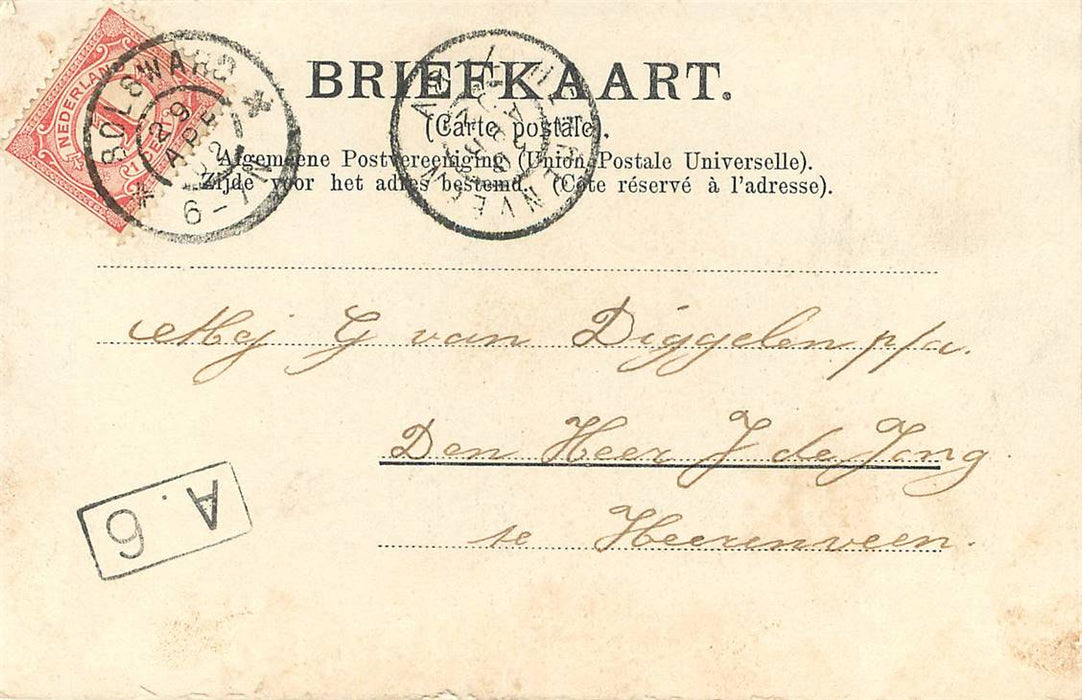 BRIEFKAART.
(Carte postale).
Algemeene Postvereeniging (Union Postale Universelle).
Zijde voor het adres bestemd. (Côte réservé à l'adresse).
NEDERLAND
1
BOLSWARD
29 APR 02
6-7 N
HEERENVEEN
Mej G van Diggelen p/a.
Den Heer J de Jong
te Heerenveen.
A. 6